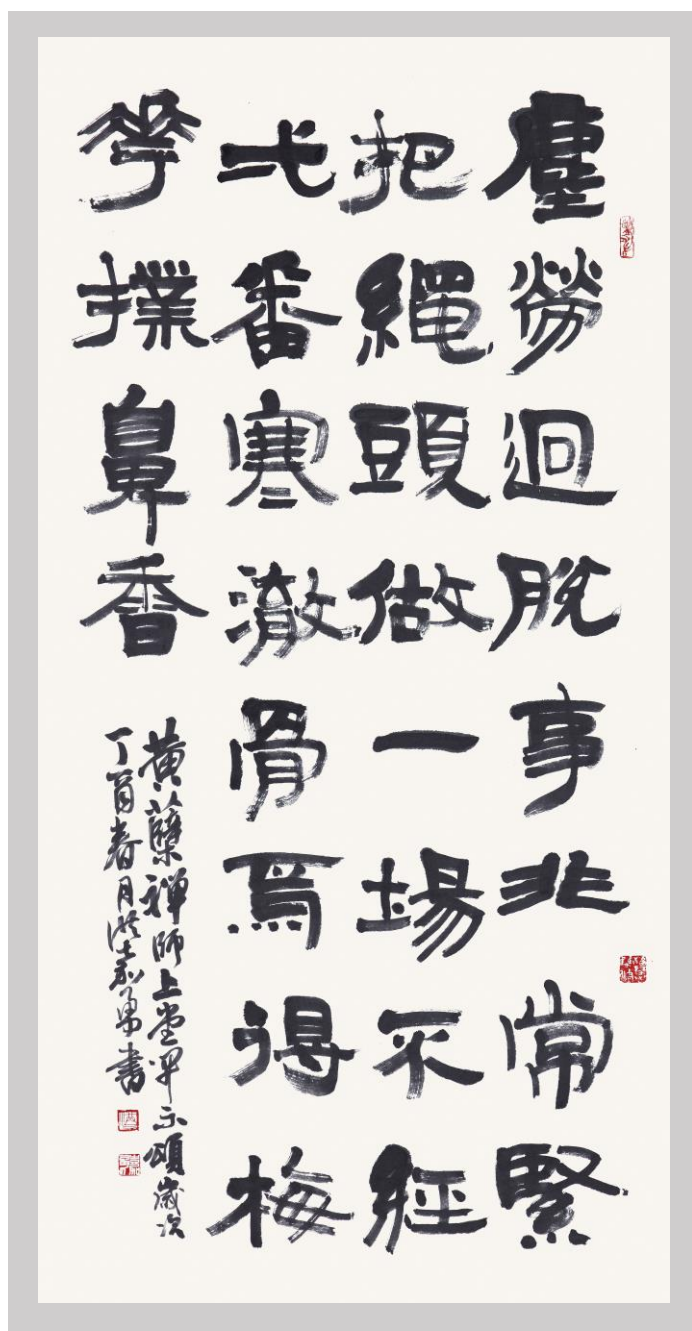 塵勞迴脫事非常緊
把繩頭做一場不經
弌番寒澈骨焉得梅
華撲鼻香
黃蘗禪師上堂開示頌歲次
丁酉春月洪嘉勇書